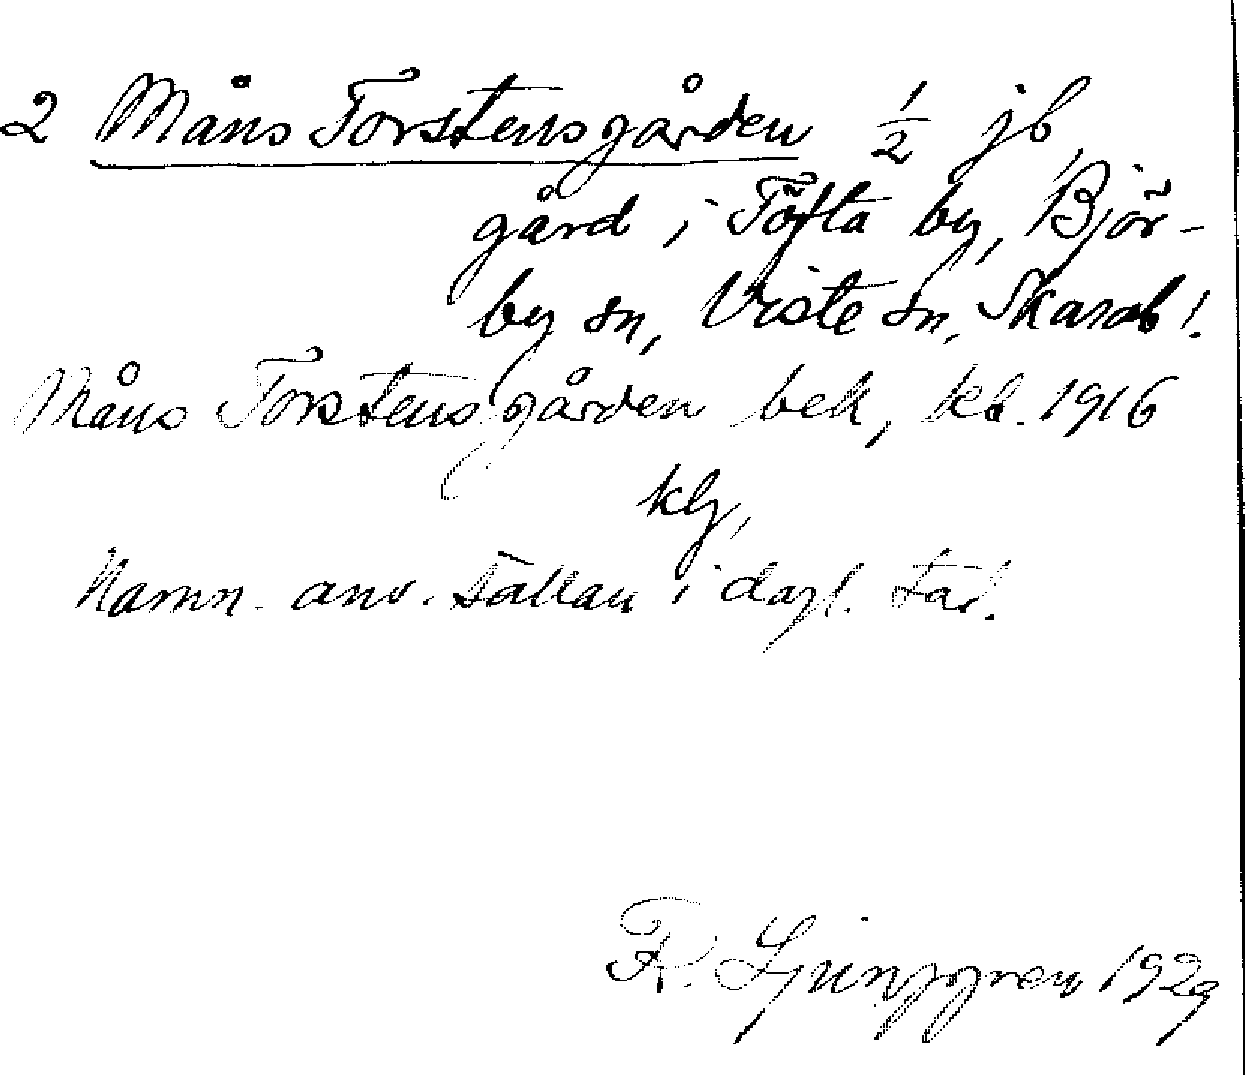 2 Måns Torstensgården 1/2 jb,
gård i Töfta by, Björ-
by sn, Viste hd, Skarab l.
Måns Torstensgården bek, kb. 1916
kg,
Namn. anv. sällan i dagl. tal.
R. Ljunggren 1929